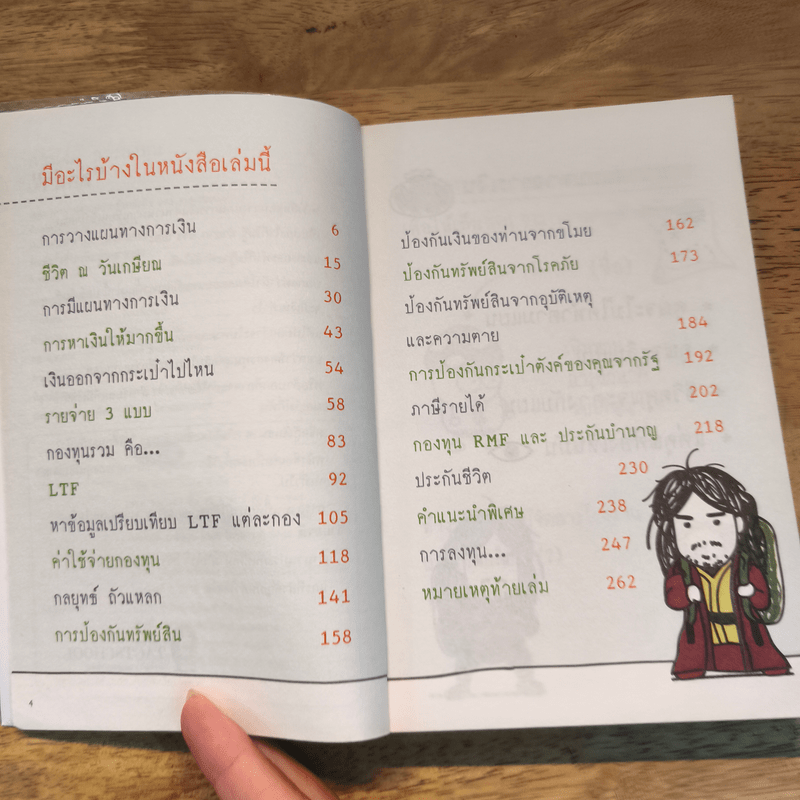 มีอะไรบ้างในหนังสือเล่มนี้
การวางแผนทางการเงิน 6
ชีวิต ณ วันเกษียณ 15
การมีแผนทางการเงิน 30
การหาเงินให้มากขึ้น 43
เงินออกจากกระเป๋าไปไหน 54
รายจ่าย 3 แบบ 58
กองทุนรวม คือ... 83
LTF 92
หาข้อมูลเปรียบเทียบ LTF แต่ละกอง 105
ค่าใช้จ่ายกองทุน 118
กลยุทธ์ ถัวแหลก 141
การป้องกันทรัพย์สิน 158
4
ป้องกันเงินของท่านจากขโมย 162
ป้องกันทรัพย์สินจากโรคภัย 173
ป้องกันทรัพย์สินจากอุบัติเหตุ
และความตาย 184
การป้องกันกระเป๋าตังค์ของคุณจากรัฐ 192
ภาษีรายได้ 202
กองทุน RMF และ ประกันบำนาญ 218
ประกันชีวิต 230
คำแนะนำพิเศษ 238
การลงทุน... 247
หมายเหตุท้ายเล่ม 262